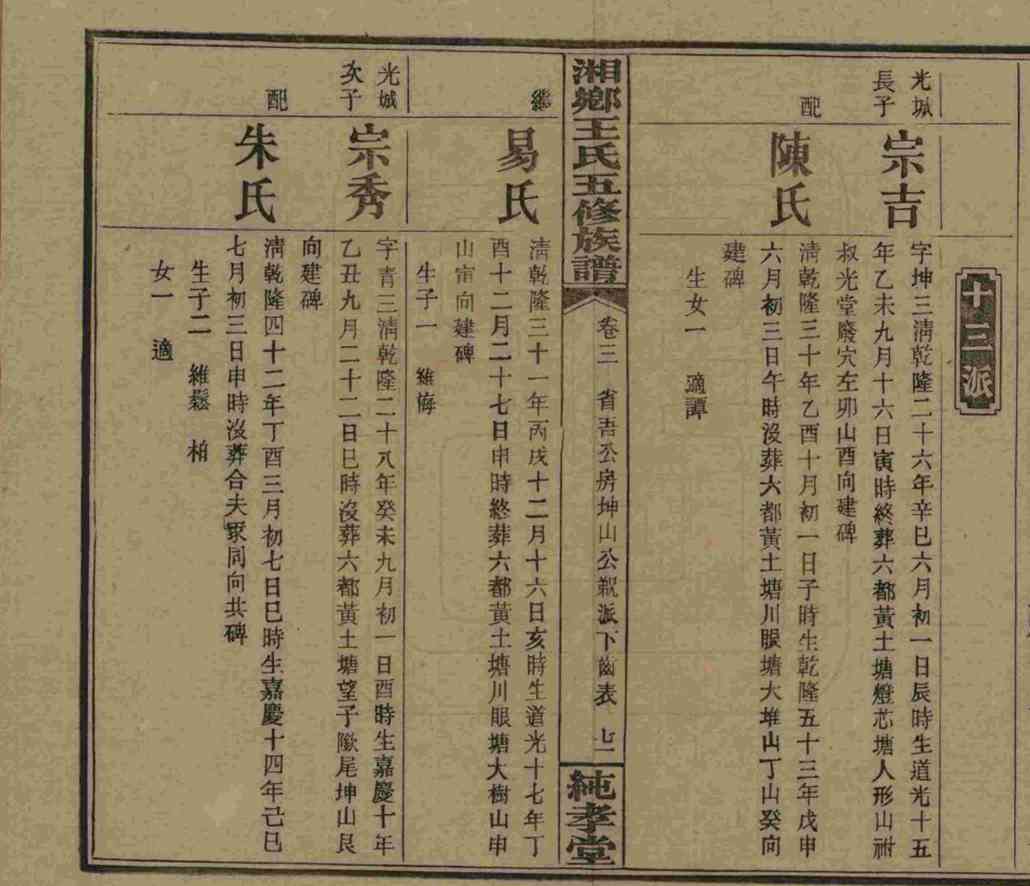 十三派
光城長子
宗吉
字坤三淸乾隆二十六年辛巳六月初一日辰時生道光十五
年乙未九月十六日寅時終葬六都黃土塘燈芯塘人形山祔
叔光堂廢穴左卯山酉向建碑
配
陳氏
淸乾隆三十年乙酉十月初一日子時生乾隆五十三年戊申
六月初三日午時沒葬六都黃土塘川眼塘大堆山丁山癸向
建碑
生女一 適譚
湘鄉王氏五修族譜
卷三 省吾公房坤山公親派下齒表 七一
純孝堂
繼
易氏
淸乾隆三十一年丙戌十二月十六日亥時生道光十七年丁
酉十二月二十七日申時終葬六都黃土塘川眼塘大樹山申
山甯向建碑
生子一 維悔
光城次子
宗秀
字青三淸乾隆二十八年癸未九月初一日酉時生嘉慶十年
乙丑九月二十二日巳時沒葬六都黃土塘望子歐尾坤山艮
向建碑
配
朱氏
淸乾隆四十二年丁酉三月初七日巳時生嘉慶十四年己巳
七月初三日申時沒葬合夫冢同向共碑
生子二 維鬆 柏
女一 適